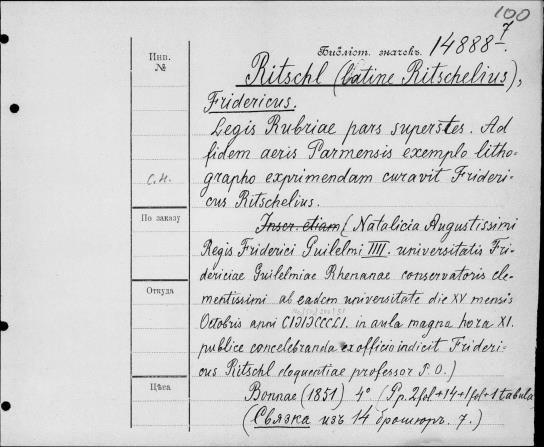 100
Библіот. значекъ. 14888 7/-.
Инв.
№
Ritschl (latine Ritschelius),
Fridericus.
Legis Rubriae pars superstes. Ad
fidem aeris Parmensis exemplo litho-
с.н.
grapho exprimendam curavit Frideri-
cus Ritschelius.
По заказу
Inscr. etiam (Natalicia Augustissimi
Regis Friderici Guilelmi IIII. universitatis Fri-
dericiae Guilelmiae Rhenanae conservatoris cle-
Откуда
mentissimi ab eadem universitate die XV mensis
Octobris anni CIƆIƆCCCLI. in aula magna hora XI.
publice concelebranda ex officio indicit Frideri-
cus Ritschl eloquentiae professor P. O.)
Цѣна
Bonnae (1851) 4° (Pp. 2fol+14+1fol+1 tabula
(Связка изъ 14 брошюръ. 7.)